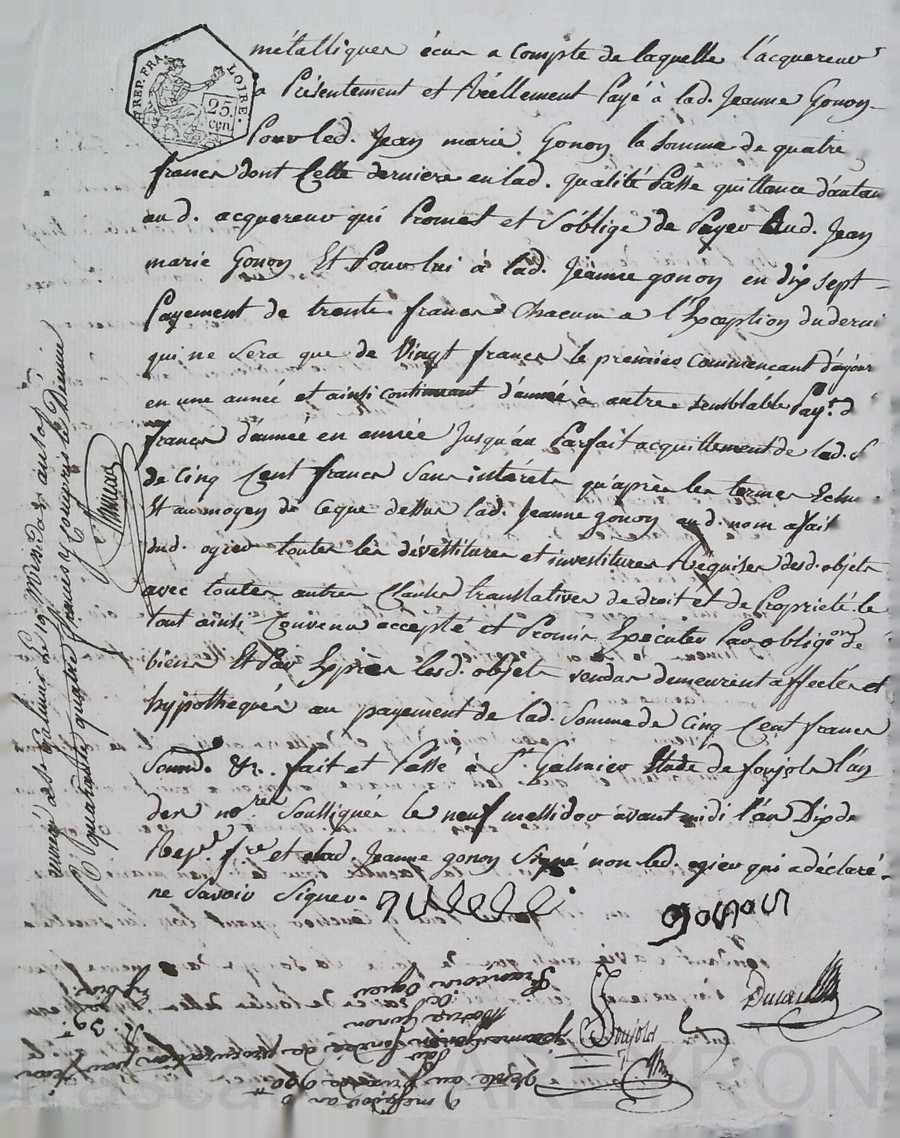 REP. FRA. LOIRE.
25 cen.
métalliques écus a compte de laquelle l'acquereur
a Présentement et Réellement Payé à lad. Jeanne Gonon
Pour led. Jean marie Gonon la somme de quatre
francs dont Cette derniere en lad. qualité Passe quittance d'autan
aud. acquereur qui Promet et S'oblige de Payer Aud. Jean
marie Gonon Et Pour lui à lad. Jeanne gonon en dix sept
Payement de trente francs Chacun a l'Exception du derni
qui ne Sera que de Vingt francs le premier Commencant d'ajour
en une année et ainsi continuant d'année à autre semblable Pay.t d
francs d'année en année Jusqu'au Parfait acquittement de lad. S
de Cinq Cent francs Sans intérêts qu'apres les termes Echu
Et au moyen de Ceque dessus lad. Jeanne gonon aud. nom a fait
dud. ogier toutes les dévestitures et investitures Réquises desd. objets
avec toutes autres Clauses translatives de droit et de Propriété. le
tout ainsi Convenu accepté et Promis Exécuter Par obligon de
biens Et Par Exprès lesd. objets vendus demeurent affectés et
hypothequés au payement de lad. Somme de Cinq Cent francs
Soumd. &c. fait et Passé à St Galmier Etude de foujols l'un
des nores Soussignés le neuf messidor avant midi l'an Dix de
Rep.e fse et lad. Jeanne gonon Signé non led. ogier qui a déclaré
ne Savoir Signer.
gonon
Foujols
enregé à St Galmier le 19 Messidor an 10
R quarante quatre francs y Compris le Dixième
9 messidor an 10
Vente au Prix de 500 tt
Jeanne Gonon fondée de procuration par Jean
Marie Gonon
François Ogier